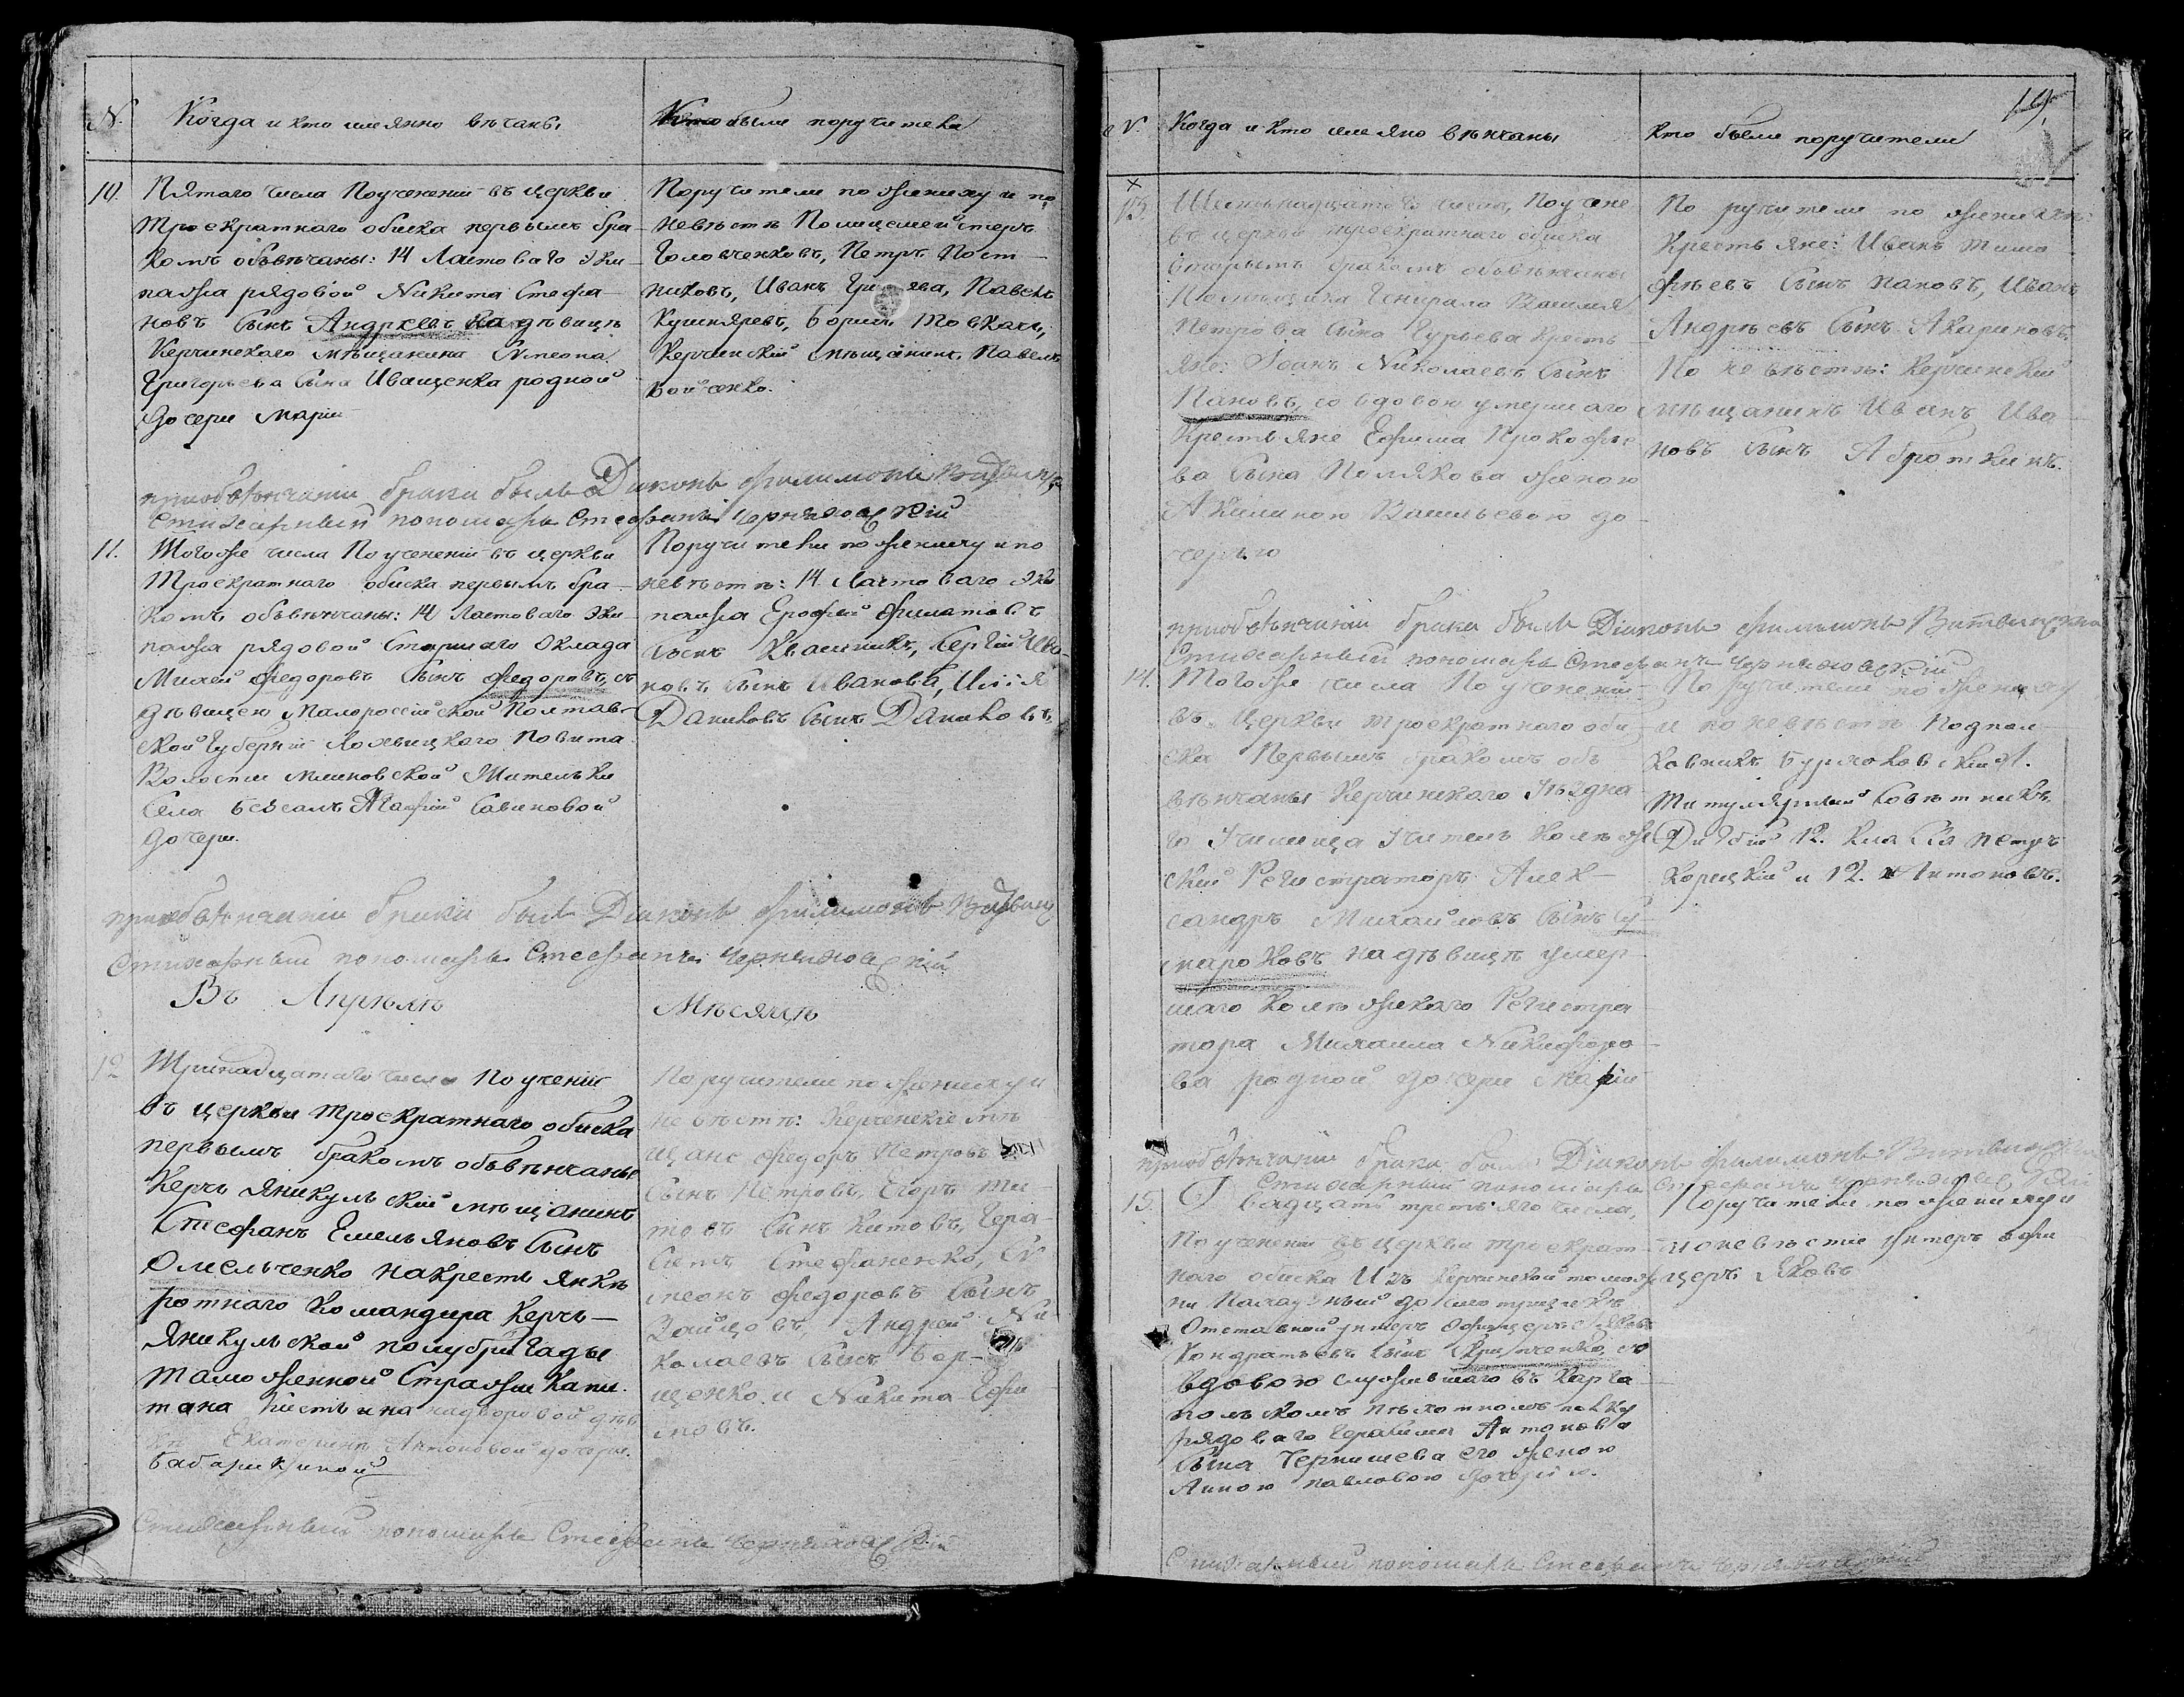 N. Когда и кто имянно вѣчаны
Кто были поручители
10. Пятаго числа По учененіи въ церкви
троекратнаго обиска первымъ бра-
комъ обвѣнчаны: 14 Ластоваго Эки-
пажа рядовой Никита Стефа-
новъ сынъ Андреевъ на дѣвицѣ
Керчинскаго мѣщанина Симеона
Григорьева сына Иващенка родной
дочери Маріи
Поручители по жениху и по
невѣстѣ Полицемейстеръ
Головченковъ, Петръ Пост-
никовъ, Иванъ Павелъ
Кушняревъ, Борисъ Товкачъ,
Керчинскій мѣщанинъ Павелъ
Бойченко.
приобвѣнчаніи брака былъ Діаконъ Филимонъ
Стихарный пономарь Стефанъ Черняховскій
11. Тогоже числа По учененіи въ церкви
Троекратнаго обиска первымъ бра-
комъ обвѣнчаны: 14 Ластоваго Эки-
пажа рядовой Старшаго Оклада
Михей Федоровъ сынъ Федоровъ, съ
дѣвицею Малороссійской Полтав-
ской Губерніи Лохвицкаго Повита
Волости Млиновской Жительки
Села Бевсалъ Агафіи Савиновой
дочери.
Поручители по жениху и по
невѣстѣ: 14 Ластоваго Эки-
пажа Ерофей Филатовъ
сынъ Квашникъ, Сергій Ива-
новъ сынъ Ивановъ, Илія
Даниловъ сынъ Даниловъ.
приобвѣнчаніи брака былъ Діаконъ Филимонъ
Стихарный пономарь Стефанъ Черняховскій
Въ Апрѣлѣ
Мѣсяцѣ
12 Тринадцатаго числа По ученіи
въ церкви троекратнаго обиска
первымъ бракомъ обвѣнчаны
Керчь Яникульскій мѣщанинъ
Стефанъ Емельяновъ сынъ
Омельченко на крестьянкѣ
ротнаго Командира Керчь-
Яникульской полубригады
таможенной Стражи Капи-
тана надворовой дѣв-
кѣ Екатеринѣ Антоновой дочери.
Поручители по жениху и
невѣстѣ: Керченскіе мѣ-
щане Федоръ Петровъ
сынъ Петровъ, Егоръ Ти-
товъ сынъ Титовъ, Гера-
симъ Стефаненко, Си-
меонъ Федоровъ сынъ
Зайцовъ, Андрей Ни-
колаевъ сынъ Бор-
щенко и Никита Ефи-
мовъ.
Стихарный пономарь Стефанъ Черняховскій
19.
N. Когда и кто имяно вѣнчаны
кто были поручители
13. числа, По учене
въ церкви троекратнаго обиска
вторымъ бракомъ обвѣнчаны
Помѣщика Генирала Василия
Петрова сына Гурьева кресть-
янe: Іоанъ Николаевъ сынъ
Пановъ, со вдовою умершаго
Крестьяне Ефима Прокофье-
ва сына Полякова женою
Акилиною Васильевою до-
черью
По ручители по женихѣ:
Крестьяне: Иванъ Тимо
фѣевъ сынъ Пановъ, Иванъ
Андрѣевъ сынъ Акариновъ.
По невѣстѣ: Керчинскій
мѣщанинъ Иванъ Ива-
новъ сынъ Аброткинъ.
приобвѣнчаніи брака былъ Діаконъ Филимонъ
Стихарный пономарь Стефанъ Черняховскій
14. Тогоже числа По учененіи
въ Церкви троекратнаго оби-
ска Первымъ бракомъ об-
вѣнчаны Керчинскаго Уѣздна-
го Училища Учитель Колѣже
ский Регистраторъ Алек-
сандръ Михайловъ сынъ Су-
мароковъ на дѣвицѣ умер-
шаго Колѣжскаго Регистра-
тора Михаила Никифоро-
ва родной дочери Маріи
По ручители по жениху
и по невѣстѣ Подпол-
ковникъ
Титулярный Совѣтникъ
12. класса Петръ
Корицкій и 12. Антоновъ.
приобвѣнчаніи брака былъ Діаконъ Филимонъ
Стихарный пономарь Стефанъ Черняховскій
15. Двадцать третьяго числа,
По учененіи въ церкви троекрат-
наго обиска Изъ Керчинской тамож
ни досмотрщикъ
Отставной унтеръ Офицеръ Яковъ
Кондратьевъ сынъ со
вдовою служившаго въ
польскомъ пѣхотномъ полку
рядоваго Герасима Антонова
сына Чернишева его женою
Анною Павловою дочерью.
Поручители по жениху и
по невѣстѣ Унтеръ Офи
церъ Яковъ
Стихарный пономарь Стефанъ Черняховскій